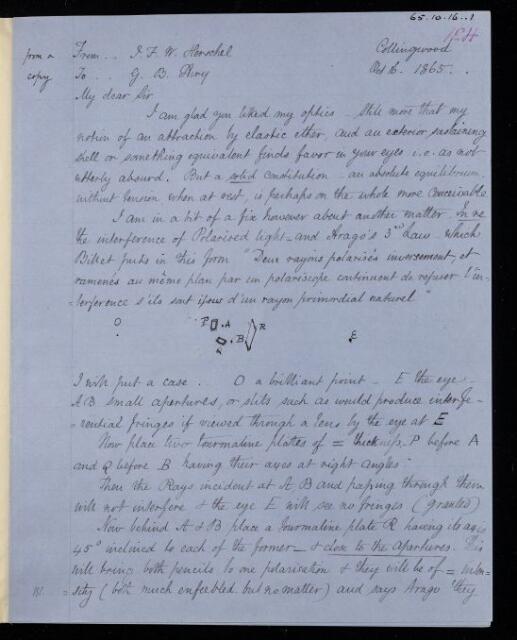 65.10.16..1
from a From .. J. F. W. Herschel Collingwood
copy To .. G. B. Airy Oct 6. 1865 ..
My dear Sir
I am glad you liked my optics - Still more that my
notion of an attraction by elastic ether, and an exterior sustaining
shell or something equivalent finds favor in your eyes i.e. as not
utterly absurd. But a solid constitution - an absolute equilibrium,
without tension when at rest, is perhaps on the whole more conceivable
I am in a bit of a fix however about another matter. In re
the interference of Polarized light = and Arago's 3rd Law which
Billet puts in this form "Deux rayons polarisés inversement, et
ramenés au même plan par un polariscope continuent de refuser l'in-
=terference s'ils sont issus d'un rayon primordial naturel"
O P A B R E
I will put a case .. O a brilliant point - E the eye -
A B small apertures, or slits such as would produce interfe-
=rential fringes if viewed through a lens by the eye at E
Now place two tourmaline plates of = thickness. P before A
and Q before B having their axes at right angles -
Then the Rays incident at A B and passing through them
will not interfere & the eye E will see no fringes (granted)
Now behind A & B place a Tourmaline plate R having its axis
45° inclined to each of the former - & close to the apertures. This
will bring both pencils to one polarisation & they will be of = inten-
=sity (both much enfeebled but no matter) and says Arago they